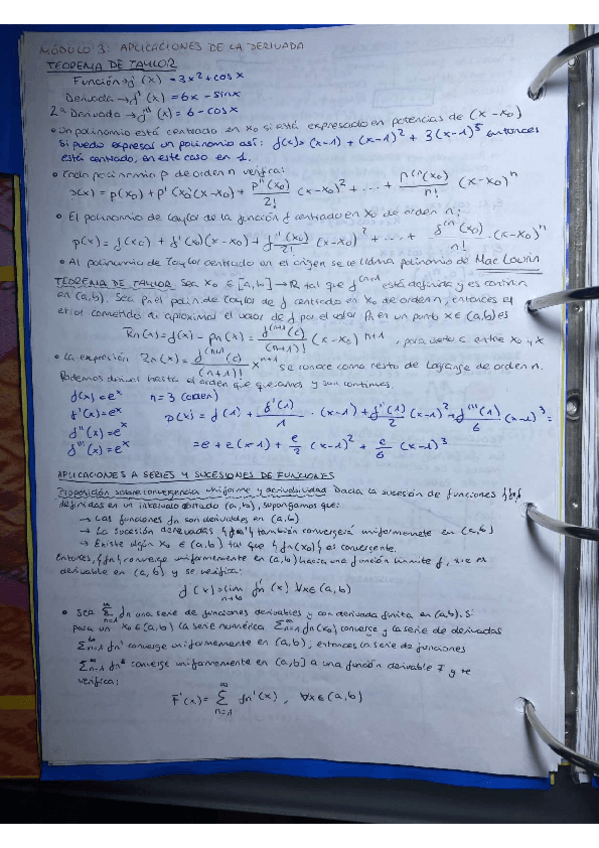 MÓDULO 3: APLICACIONES DE LA DERIVADA
TEOREMA DE TAYLOR
Función → f(x) = 3x² + cosx
Derivada → f'(x) = 6x - sinx
2ª Derivada → f''(x) = 6 - cosx
• Un polinomio está centrado en x₀ si está expresado en potencias de (x - x₀)
Si puedo expresar un polinomio así: f(x) = (x-1) + (x-1)² + 3(x-1)⁵ entonces
está centrado, en este caso en 1.
• Cada polinomio p de orden n verifica:
p(x₀) + p'(x₀)(x-x₀) + p''(x₀)/2! (x-x₀)² + ... + (x-x₀)ⁿ
• El polinomio de Taylor de la función f centrado en x₀ de orden n:
p(x) = f(x₀) + f'(x₀)(x-x₀) + f''(x₀)/2! (x-x₀)² + ... + f⁽ⁿ(x₀)/n! · (x-x₀)ⁿ
• Al polinomio de Taylor centrado en el origen se le llama polinomio de Mac Laurin
TEOREMA DE TAYLOR Sea x₀ ∈ [a,b] → R tal que f⁽ⁿ⁺¹ está definida y es continua
en (a,b). Sea pn el polin de Taylor de f centrado en x₀ de orden n, entonces el
error cometido al aproximar el valor de f por el valor Pn en un punto x ∈ (a,b) es
Rn(x) = f(x) - pn(x) = f⁽ⁿ⁺¹(c)/(n+1)! (x-x₀)ⁿ⁺¹, para cierto c entre x₀ y x
• La expresión Rn(x) = f⁽ⁿ⁺¹(c)/(n+1)! xⁿ⁺¹ se conoce como resto de Lagrange de orden n.
Podemos derivar hasta el orden que queramos y son continuas.
f(x) = eˣ n = 3 (orden)
f'(x) = eˣ p(x) = f(1) + f'(1)/1 · (x-1) + f''(1)/2 (x-1)² + f'''(1)/6 (x-1)³ =
f''(x) = eˣ
f'''(x) = eˣ = e + e(x-1) + e/2 (x-1)² + e/6 (x-1)³
APLICACIONES A SERIES Y SUCESIONES DE FUNCIONES
Proposición sobre convergencia uniforme y derivabilidad Dada la sucesión de funciones {fn}
definidas en un intervalo acotado (a,b), supongamos que:
→ Las funciones fn son derivables en (a,b)
→ La sucesión derivadas {fn'} también convergerá uniformemente en (a,b)
→ Existe algún x₀ ∈ (a,b) tal que {fn(x₀)} es convergente.
Entonces, {fn} converge uniformemente en (a,b) hacia una función límite f, que es
derivable en (a,b) y se verifica:
f'(x) = lim n→∞ fn'(x) ∀x∈(a,b)
• Sea ∑ n=1 ∞ fn una serie de funciones derivables y con derivada finita en (a,b). Si
para un x₀ ∈ (a,b) la serie numérica ∑ n=1 ∞ fn(x₀) converge y la serie de derivadas
∑ n=1 ∞ fn' converge uniformemente en (a,b), entonces la serie de funciones
∑ n=1 ∞ fn converge uniformemente en (a,b) a una función derivable F y se
verifica:
F'(x) = ∑ n=1 ∞ fn'(x), ∀x∈(a,b)